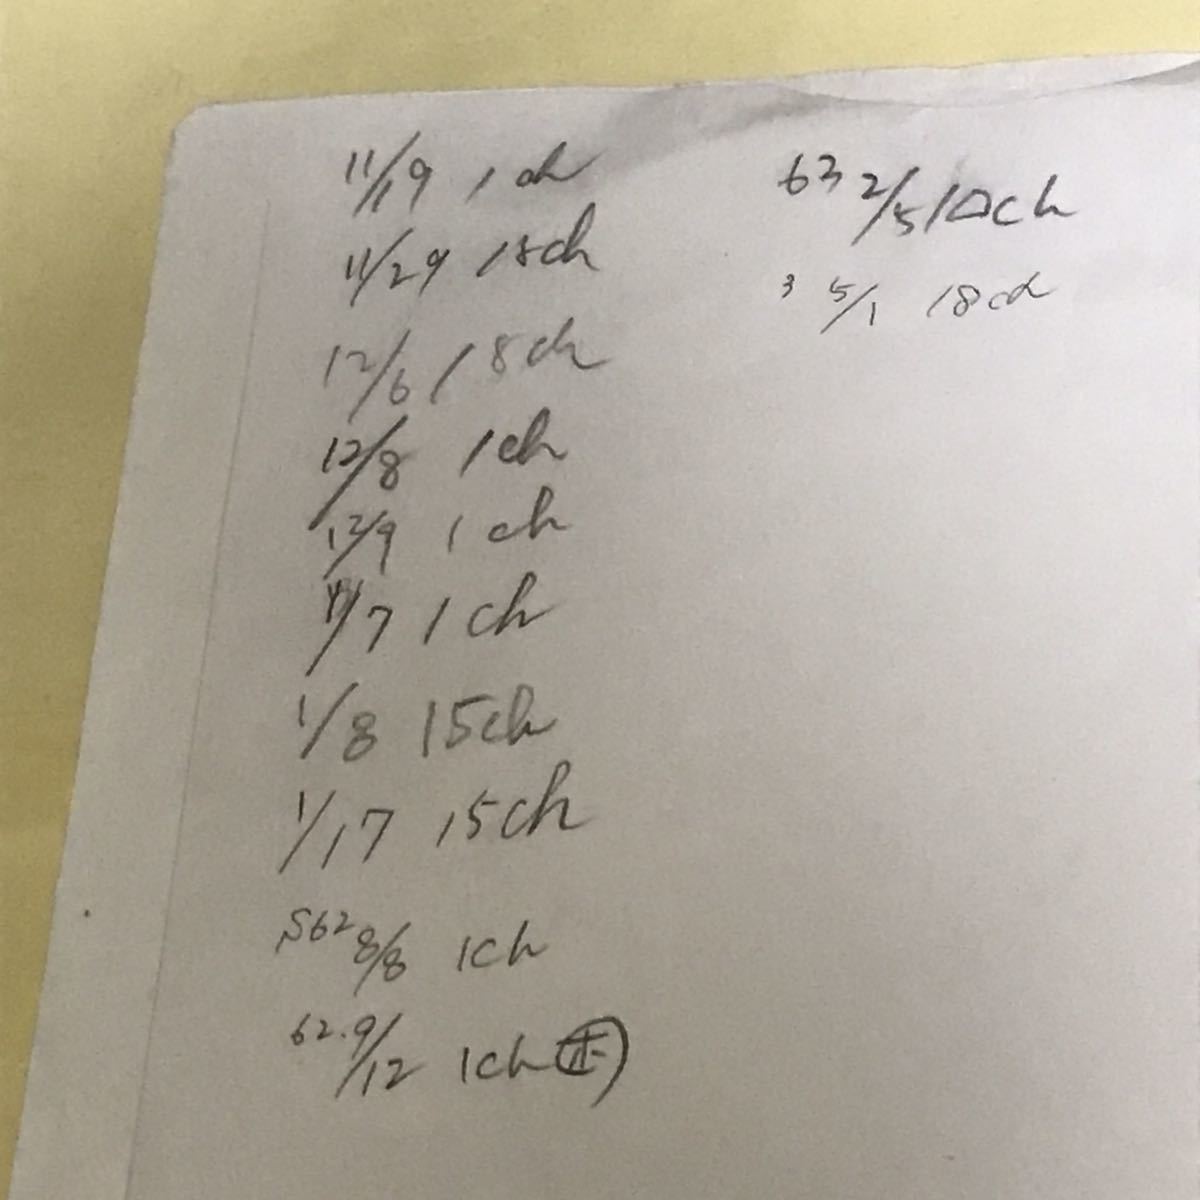 11/19 1ch
11/29 18ch
12/6 18ch
12/8 1ch
12/9 1ch
1/7 1ch
1/8 15ch
1/17 15ch
S62 8/8 1ch
62.9/12 1ch
63 2/5 10ch
3 5/1 18ch